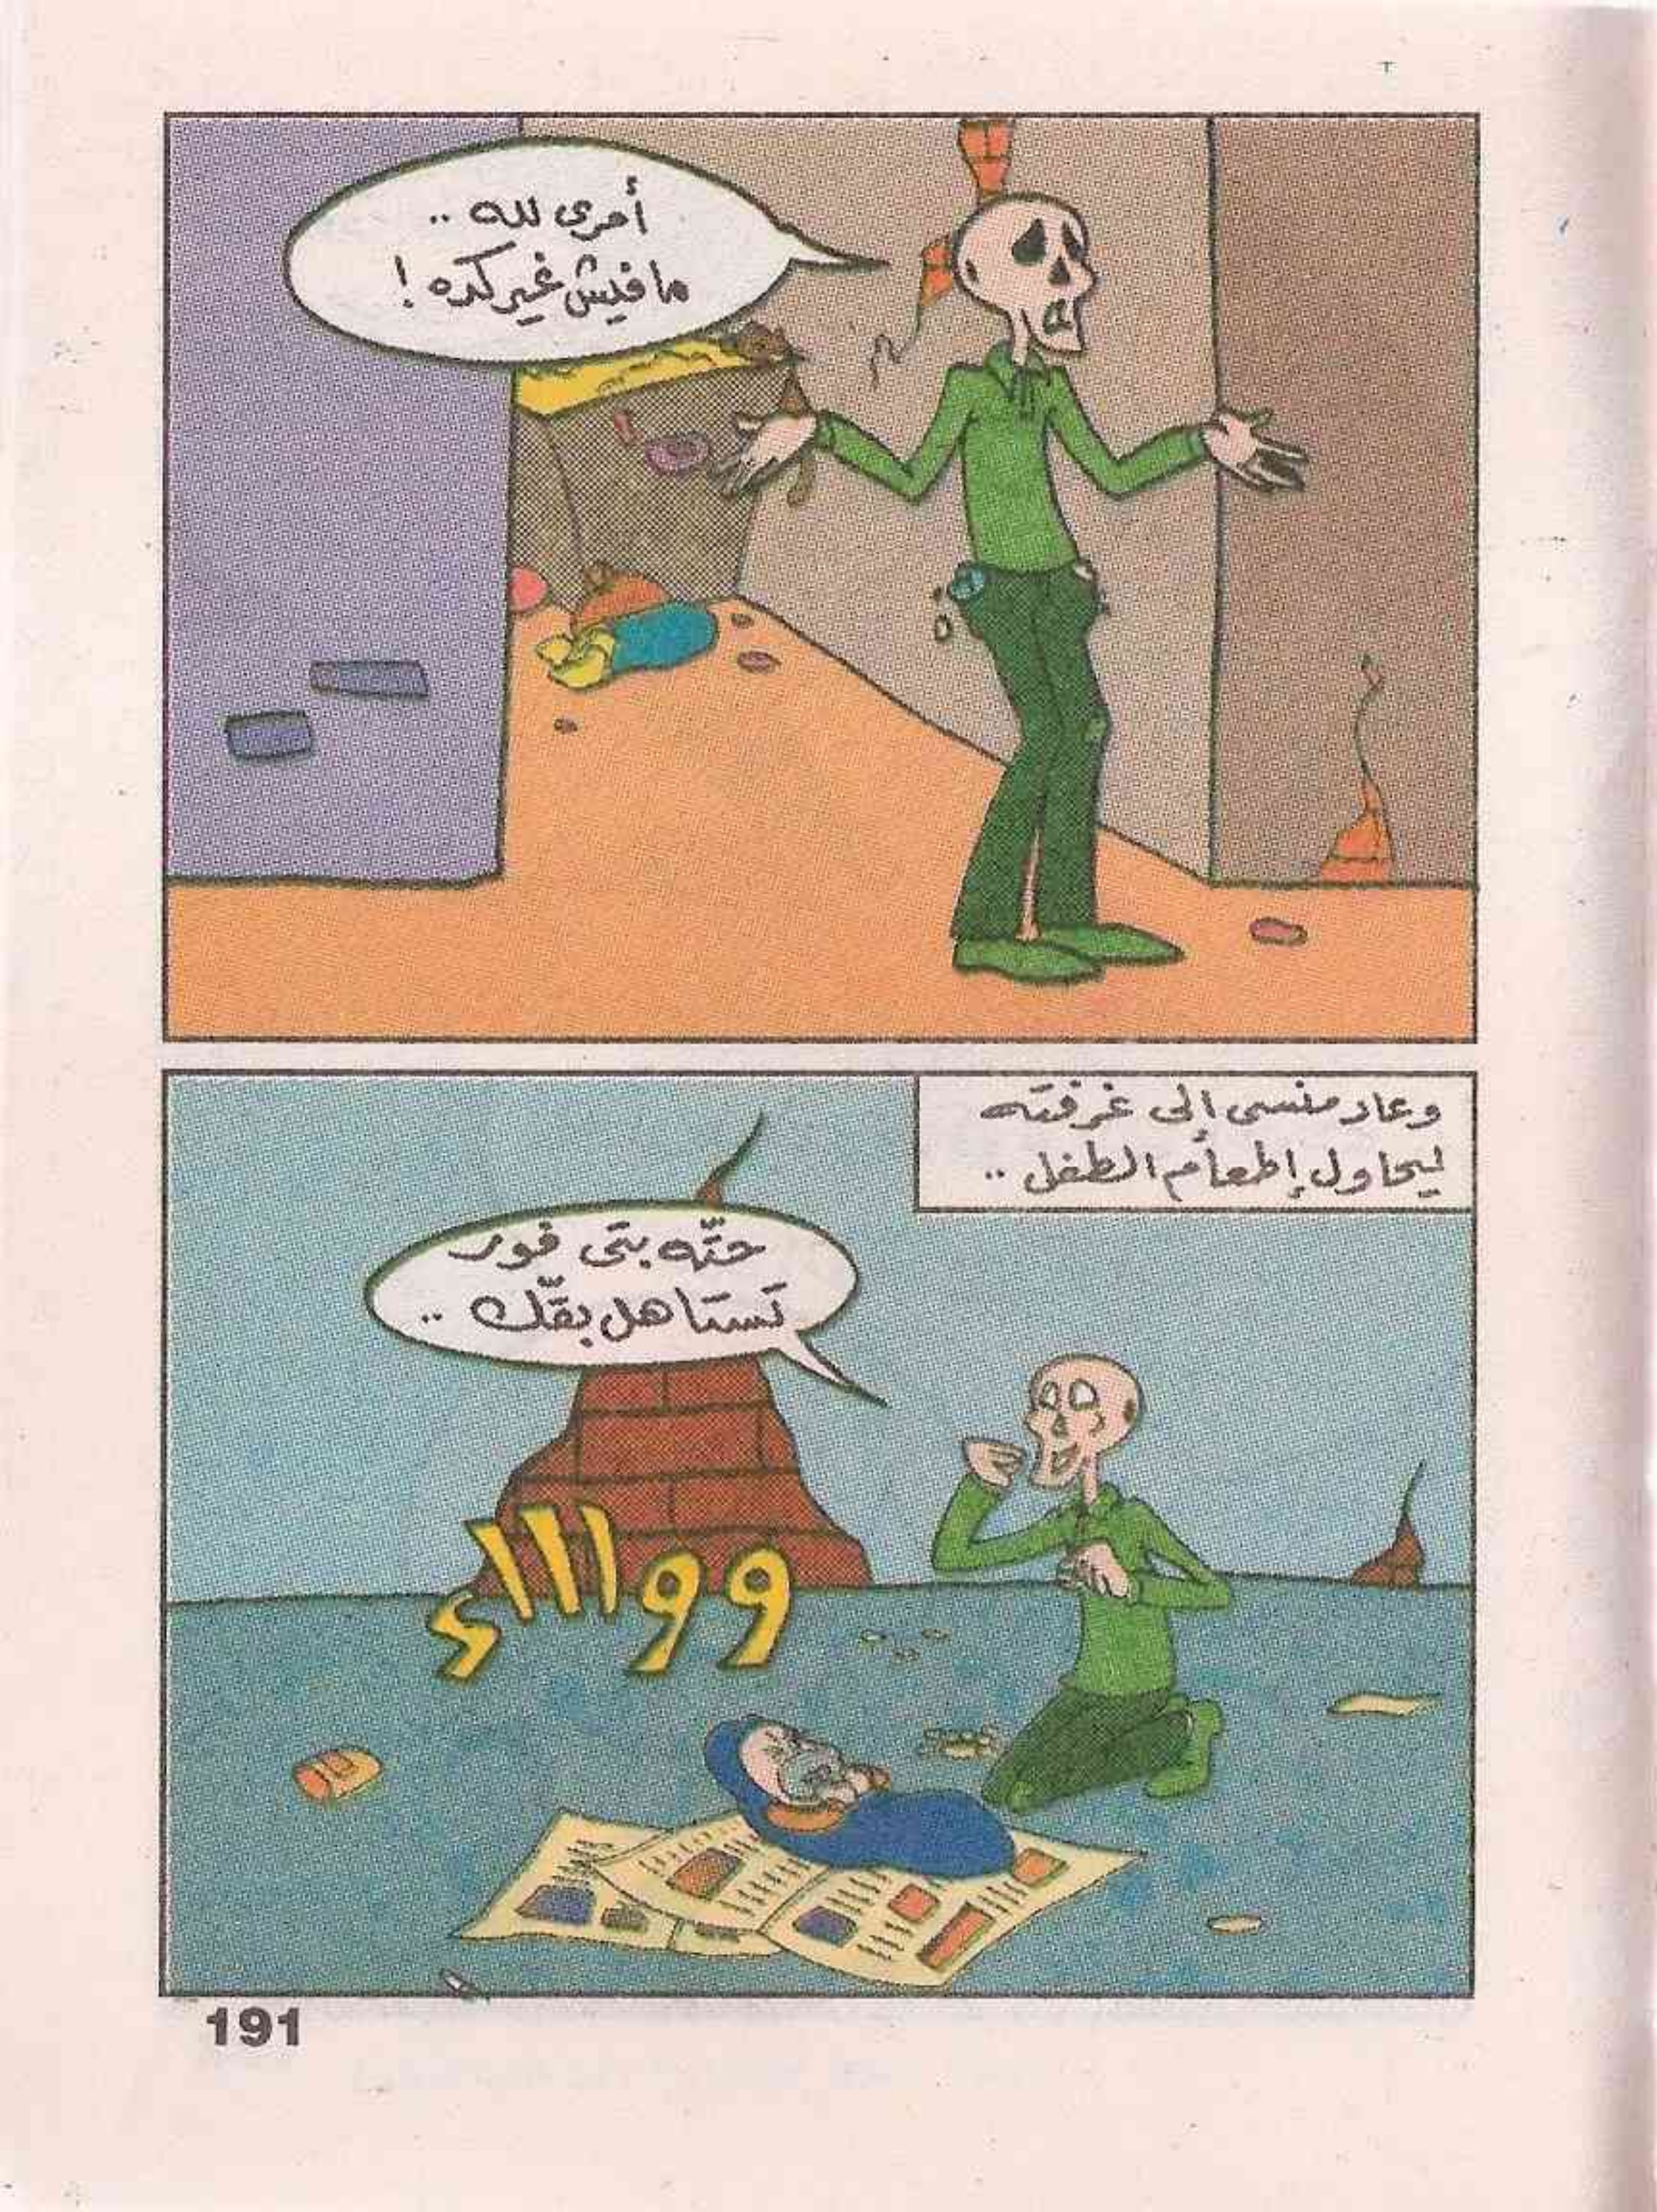 أمرى لله ..
مافيش غير كده !
وعاد منسى إلى غرفته
ليحاول إطعام الطفل ..
حتّه بتى فور
تستاهل بقّك ..
وواااء
191